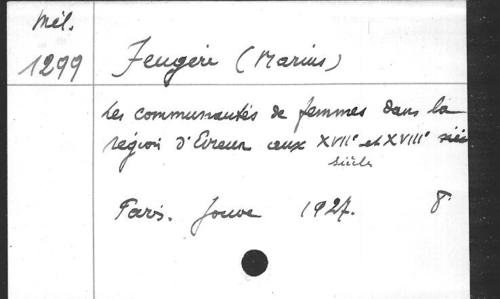 Mél.
1299
Feugère (Marius)
Les communautés de femmes dans la
région d'Evreux aux XVIIe et XVIIIe siè
siècle
Paris. Jouve 1927. 8°